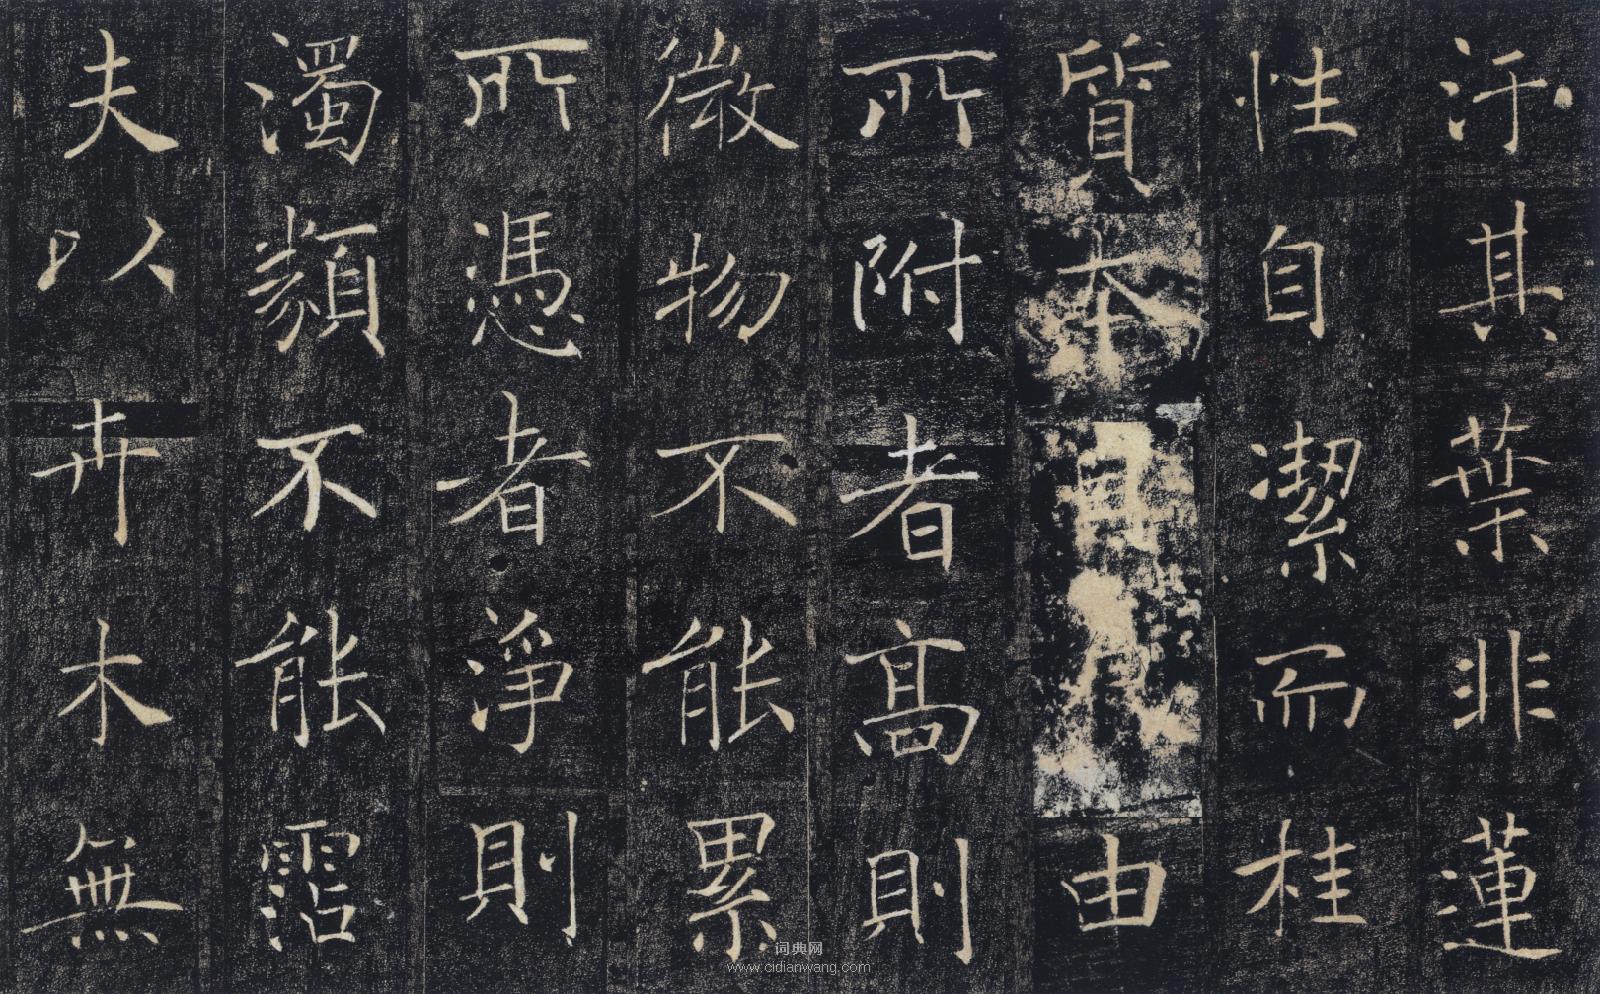 汙其葉非蓮
性自潔而桂
質本貞良由
所附者高則
微物不能累
所憑者淨則
濁類不能霑
夫以卉木無
词典网
www.cidianwang.com